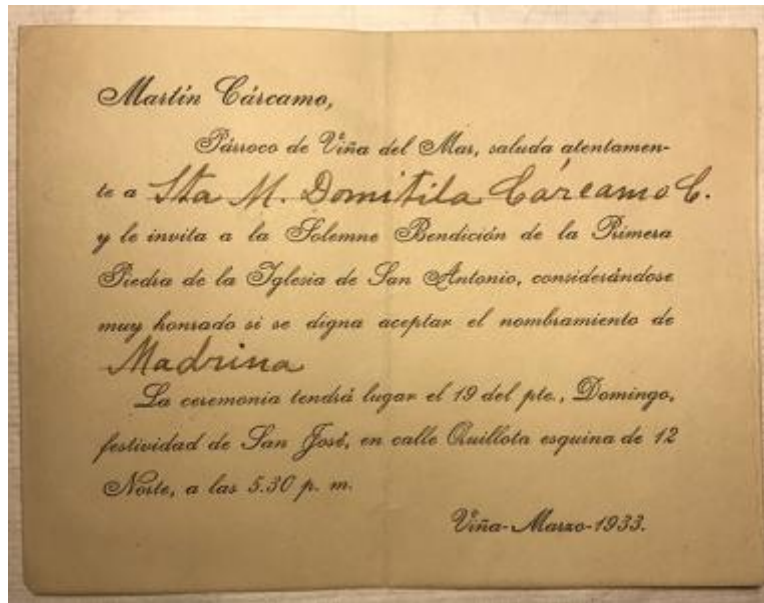 Martín Cárcamo,
Párroco de Viña del Mar, saluda atentamen-
te a Sta M. Domitila Cárcamo C.
y le invita a la Solemne Bendición de la Primera
Piedra de la Iglesia de San Antonio, considerándose
muy honrado si se digna aceptar el nombramiento de
Madrina
La ceremonia tendrá lugar el 19 del pte., Domingo,
festividad de San José, en calle Quillota esquina de 12
Norte, a las 5.30 p. m.
Viña-Marzo-1933.